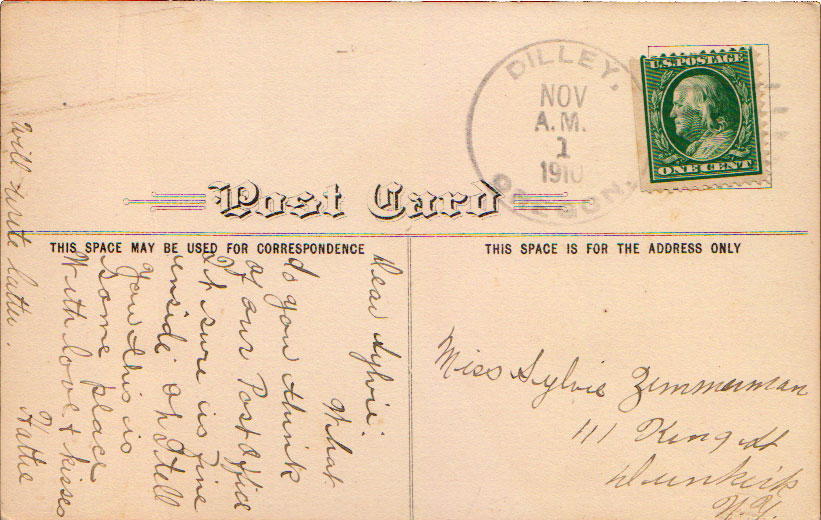 DILLEY,
NOV
A.M.
1
1910
OREGON.
U.S. POSTAGE
ONE CENT
Post Card
THIS SPACE MAY BE USED FOR CORRESPONDENCE
THIS SPACE IS FOR THE ADDRESS ONLY
Dear Sylvie:
What
do you think
of our Post Office
It sure is fine
inside oh I tell
you this is
some place
With love & kisses
Hattie
Will write latter.
Miss Sylvie Zimmerman
111 King St
Dunkirk
N.Y.